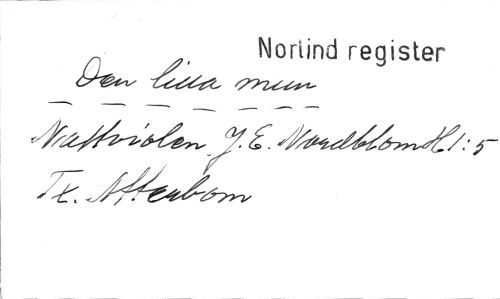 Norlind register
Den lilla mun
Nattviolen J. E. Nordblom H 1:5
Tx. Atterbom